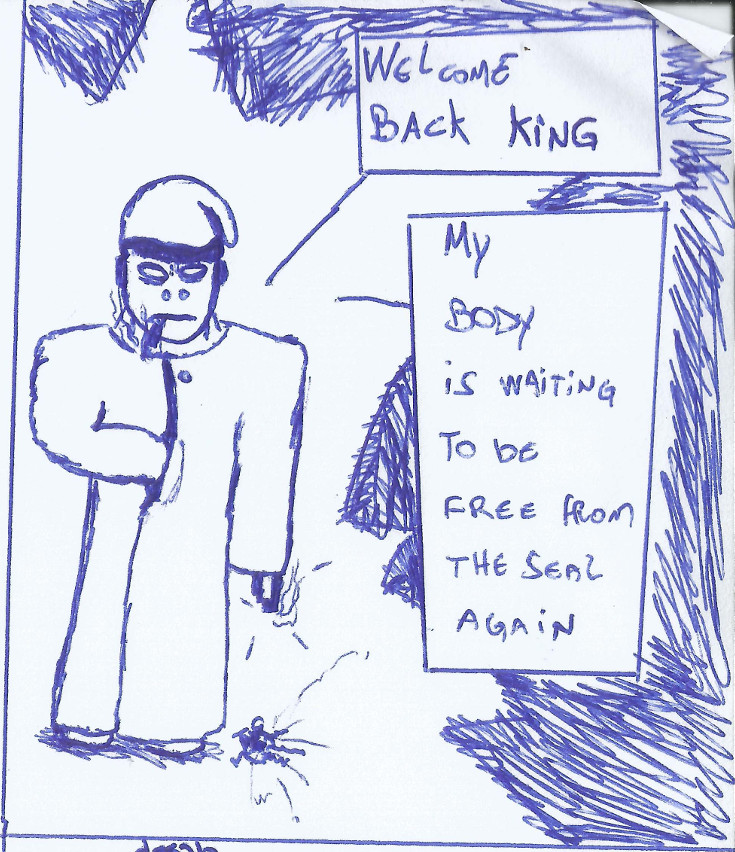 WELCOME
BACK KING
My
BODY
is WAITING
TO BE
FREE FROM
THE SEAL
AGAIN